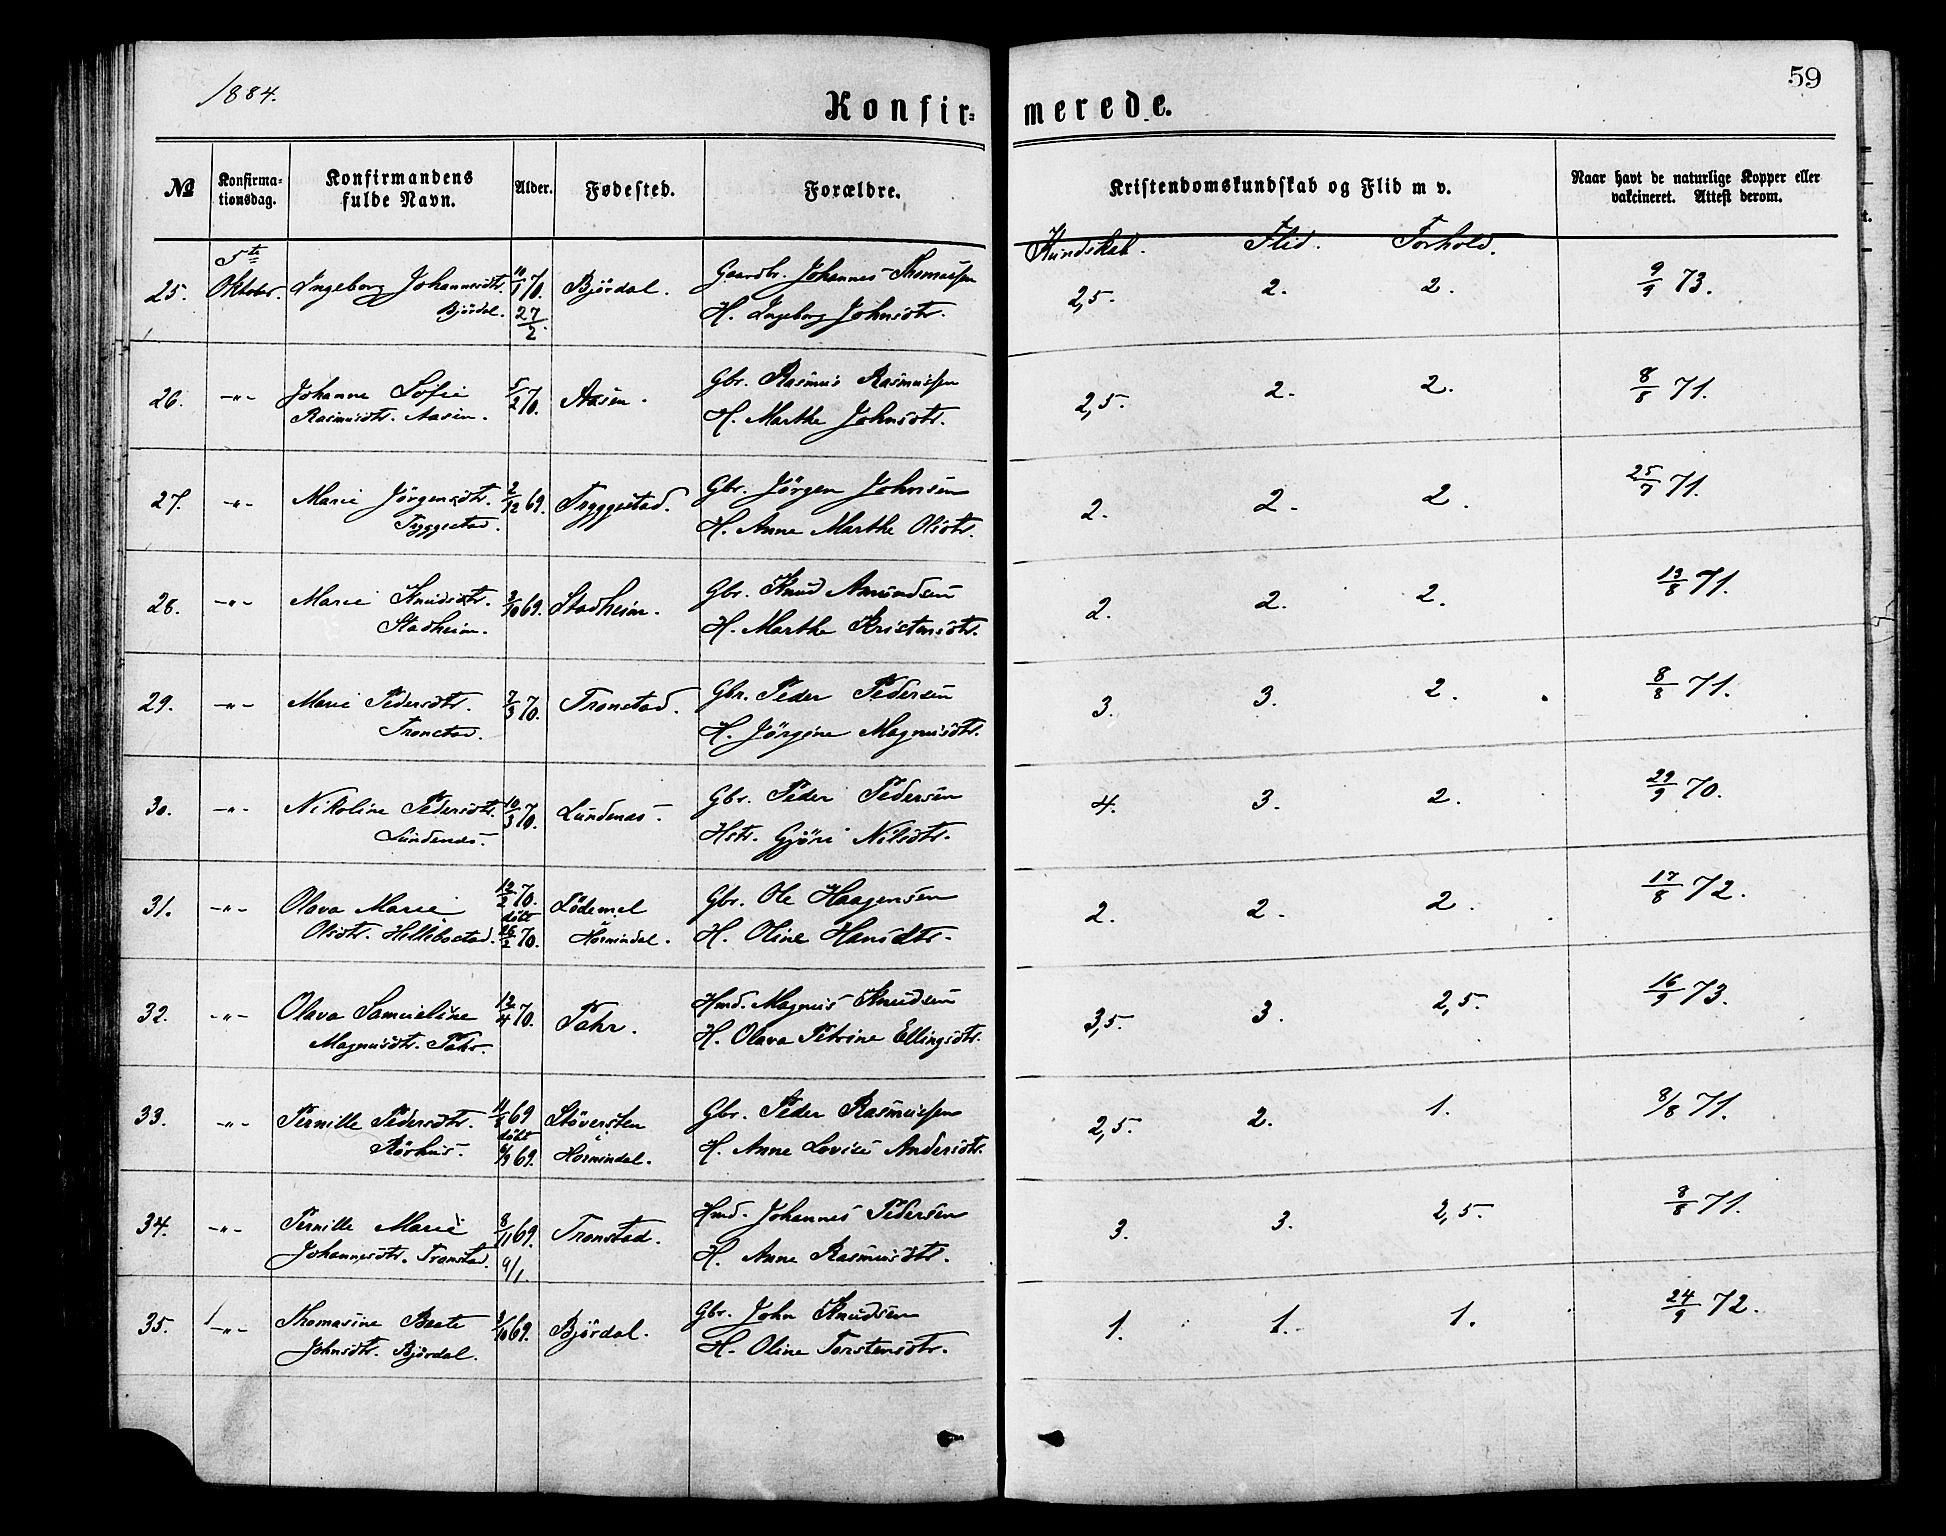 1884.
59
Konfir-
merede.
№
Konfirma-
tionsdag.
Konfirmandens
fulde Navn.
Alder.
Fødested.
Forældre.
Kristendomskundskab og Flid m v.
Naar havt de naturlige Kopper eller
vakcineret. Attest derom.
Kundskab. Flid. Forhold.
5te
25. Oktober. Ingeborg Johannesdtr. 10/1 70. Björdal. Gaardbr. Johannes Thomassen 2,5. 2. 2. 9/9 73.
Björdal. 27/2. H. Ingeborg Johnsdtr.
26. -"- Johanne Sofie 5/2 70. Aasen. Gbr. Rasmus Rasmussen 2,5. 2. 2. 8/8 71.
Rasmusdtr. Aasen. H. Marthe Johnsdtr.
27. -"- Marie Jörgensdtr. 2/12 69. Tryggestad. Gbr. Jörgen Johnsen 2. 2. 2. 25/7 71.
Tryggestad. H. Anne Marthe Olsdtr.
28. -"- Marie Knudsdtr. 3/10 69. Stadheim. Gbr. Knud Amundsen 2. 2. 2. 13/8 71.
Stadheim. H. Marthe Kristensdtr.
29. -"- Marie Pedersdtr. 7/3 70. Tronstad. Gbr. Peder Pedersen 3. 3. 2. 8/8 71.
Tronstad. H. Jörgine Magnusdtr.
30. -"- Nikoline Pedersdtr. 10/3 70. Lundenæs. Gbr. Peder Pedersen 4. 3. 2. 29/9 70.
Lundenæs. Hstr. Gjöri Nilsdtr.
31. -"- Olava Marie 12/2 70. Lödemel Gbr. Ole Haagensen 2. 2. 2. 17/8 72.
döbt
Olsdtr. Hellebostad. 26/2 70. i Hornindal. H. Oline Hansdtr.
32. -"- Olava Samueline 12/4 70. Tahr. Hmd. Magnus Knudsen 3,5. 3. 2,5. 16/9 73.
Magnusdtr. Tahr. H. Olava Petrine Ellingsdtr.
33. -"- Pernille Pedersdtr. 11/8 69 Stöversten Gbr. Peder Rasmussen 2,5. 2. 1. 8/8 71.
döbt i
Rörhus. 9/9 69. Hornindal. H. Anne Lovise Andersdtr.
34. -"- Pernille Marie 8/11 69. Tronstad. Hmd. Johannes Pedersen 3. 3. 2,5. 8/8 71.
Johannesdtr. Tronstad. 9/1. H. Anne Rasmusdtr.
35. -"- Thomasine Beate 3/10 69. Björdal. Gbr. John Knudsen 1. 1. 1. 24/9 72.
Johnsdtr. Björdal. H. Oline Torstensdtr.